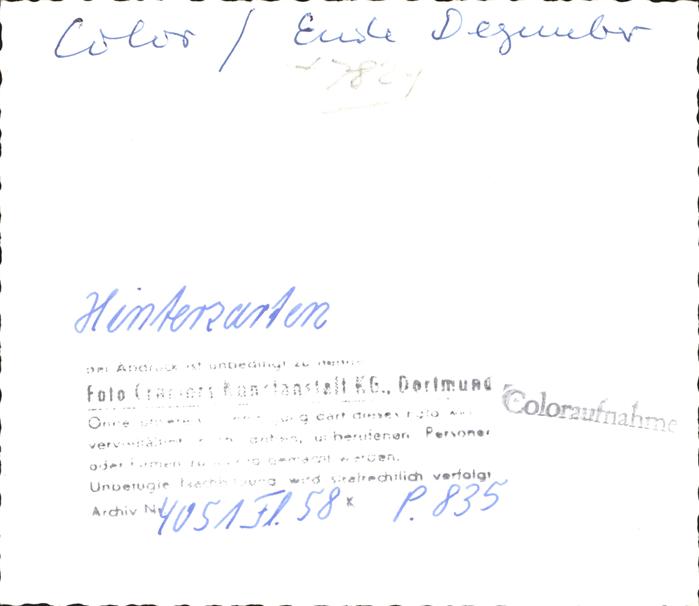 Color / Ende Dezember
Hinterzarten
Bei Abdruck ist unbedingt zu
Foto Cramers Kunstanstalt KG., Dortmund
Coloraufnahme
Ohne dieses Foto
vervielfältigt unberufenen Personen
oder Firmen gemacht werden.
Unbefugte wird strafrechtlich verfolgt
Archiv Nr. 4051 Fl. 58 x P. 835